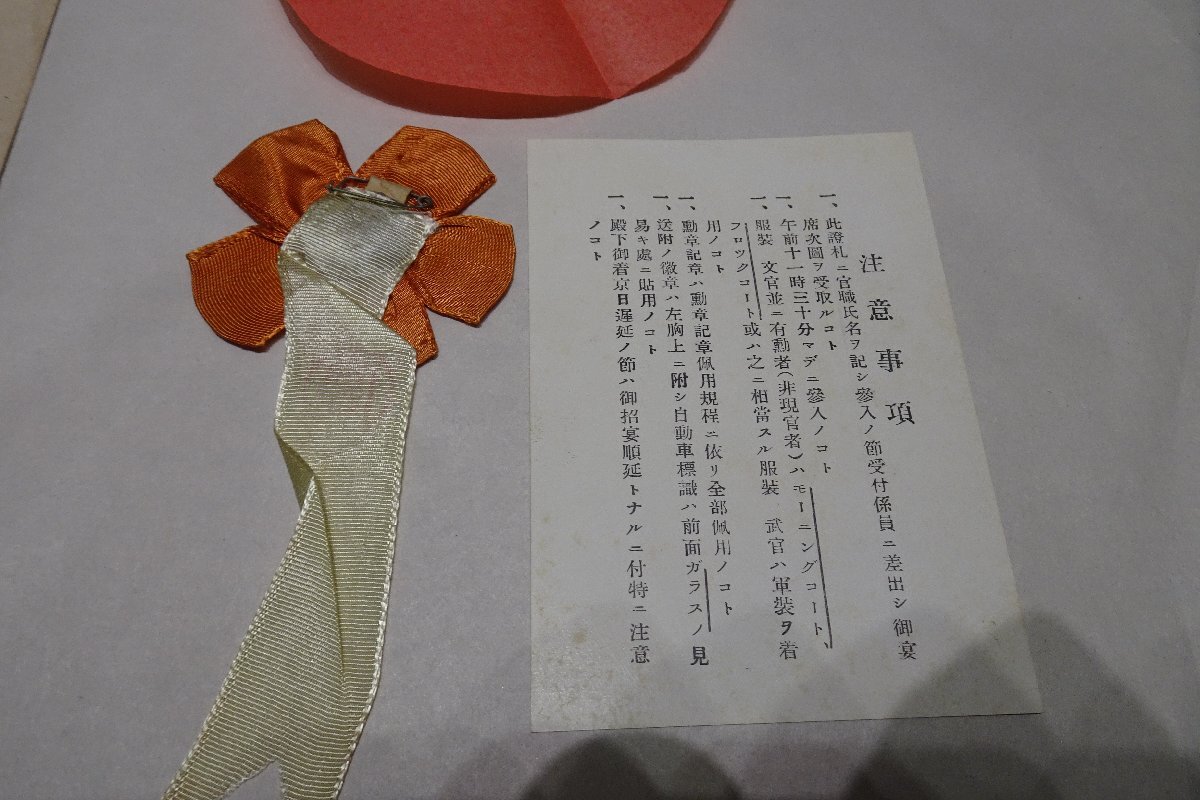 注意事項
一、此證札ニ官職氏名ヲ記シ參入ノ節受付係員ニ差出シ御宴
席次圖ヲ受取ルコト
一、午前十一時三十分マデニ參入ノコト
一、服裝 文官並ニ有勳者(非現官者)ハモーニングコート、
フロツクコート或ハ之ニ相當スル服裝 武官ハ軍裝ヲ着
用ノコト
一、勳章記章ハ勳章記章佩用規程ニ依リ全部佩用ノコト
一、送附ノ徽章ハ左胸上ニ附シ自動車標識ハ前面ガラスノ見
易キ處ニ貼用ノコト
一、殿下御着京日遲延ノ節ハ御招宴順延トナルニ付特ニ注意
ノコト